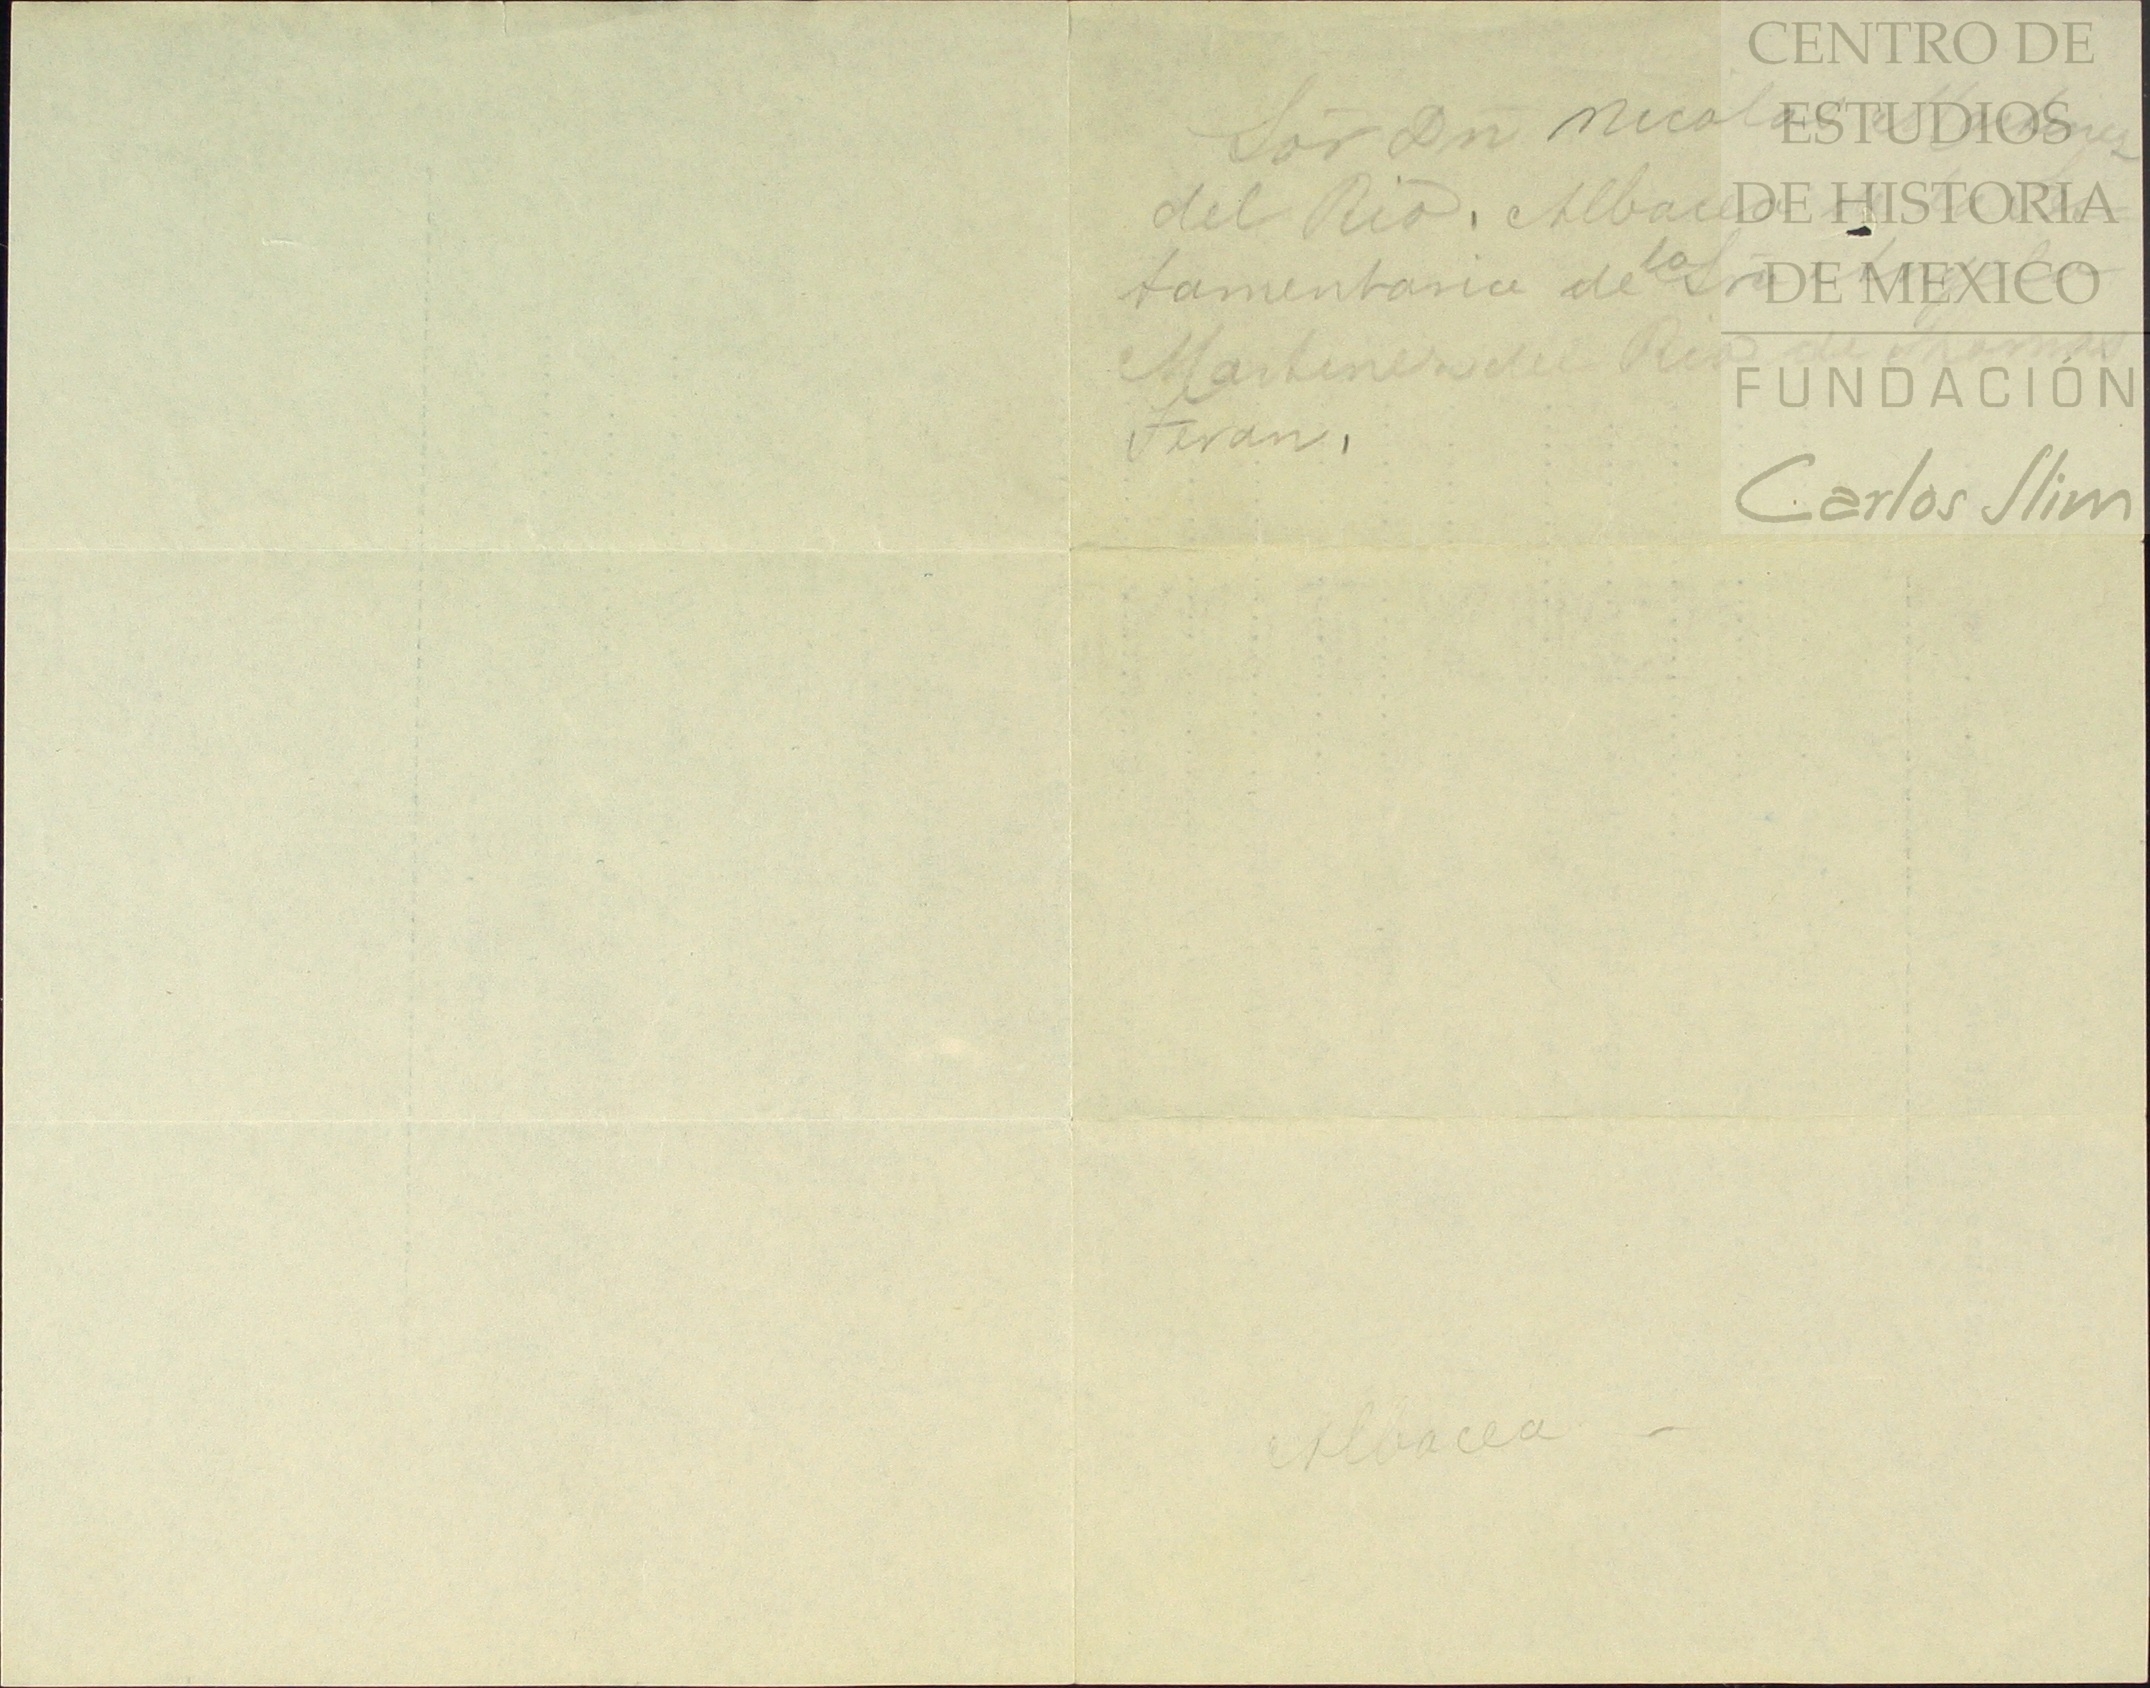 Sor Dn Nicolas Martinez
del Rio. Albacea de la tes-
tamentaria de la Sra Angela
Martinez del Rio de Thomas
Teran.
Albacea –
CENTRO DE
ESTUDIOS
DE HISTORIA
DE MEXICO
FUNDACIÓN
Carlos Slim